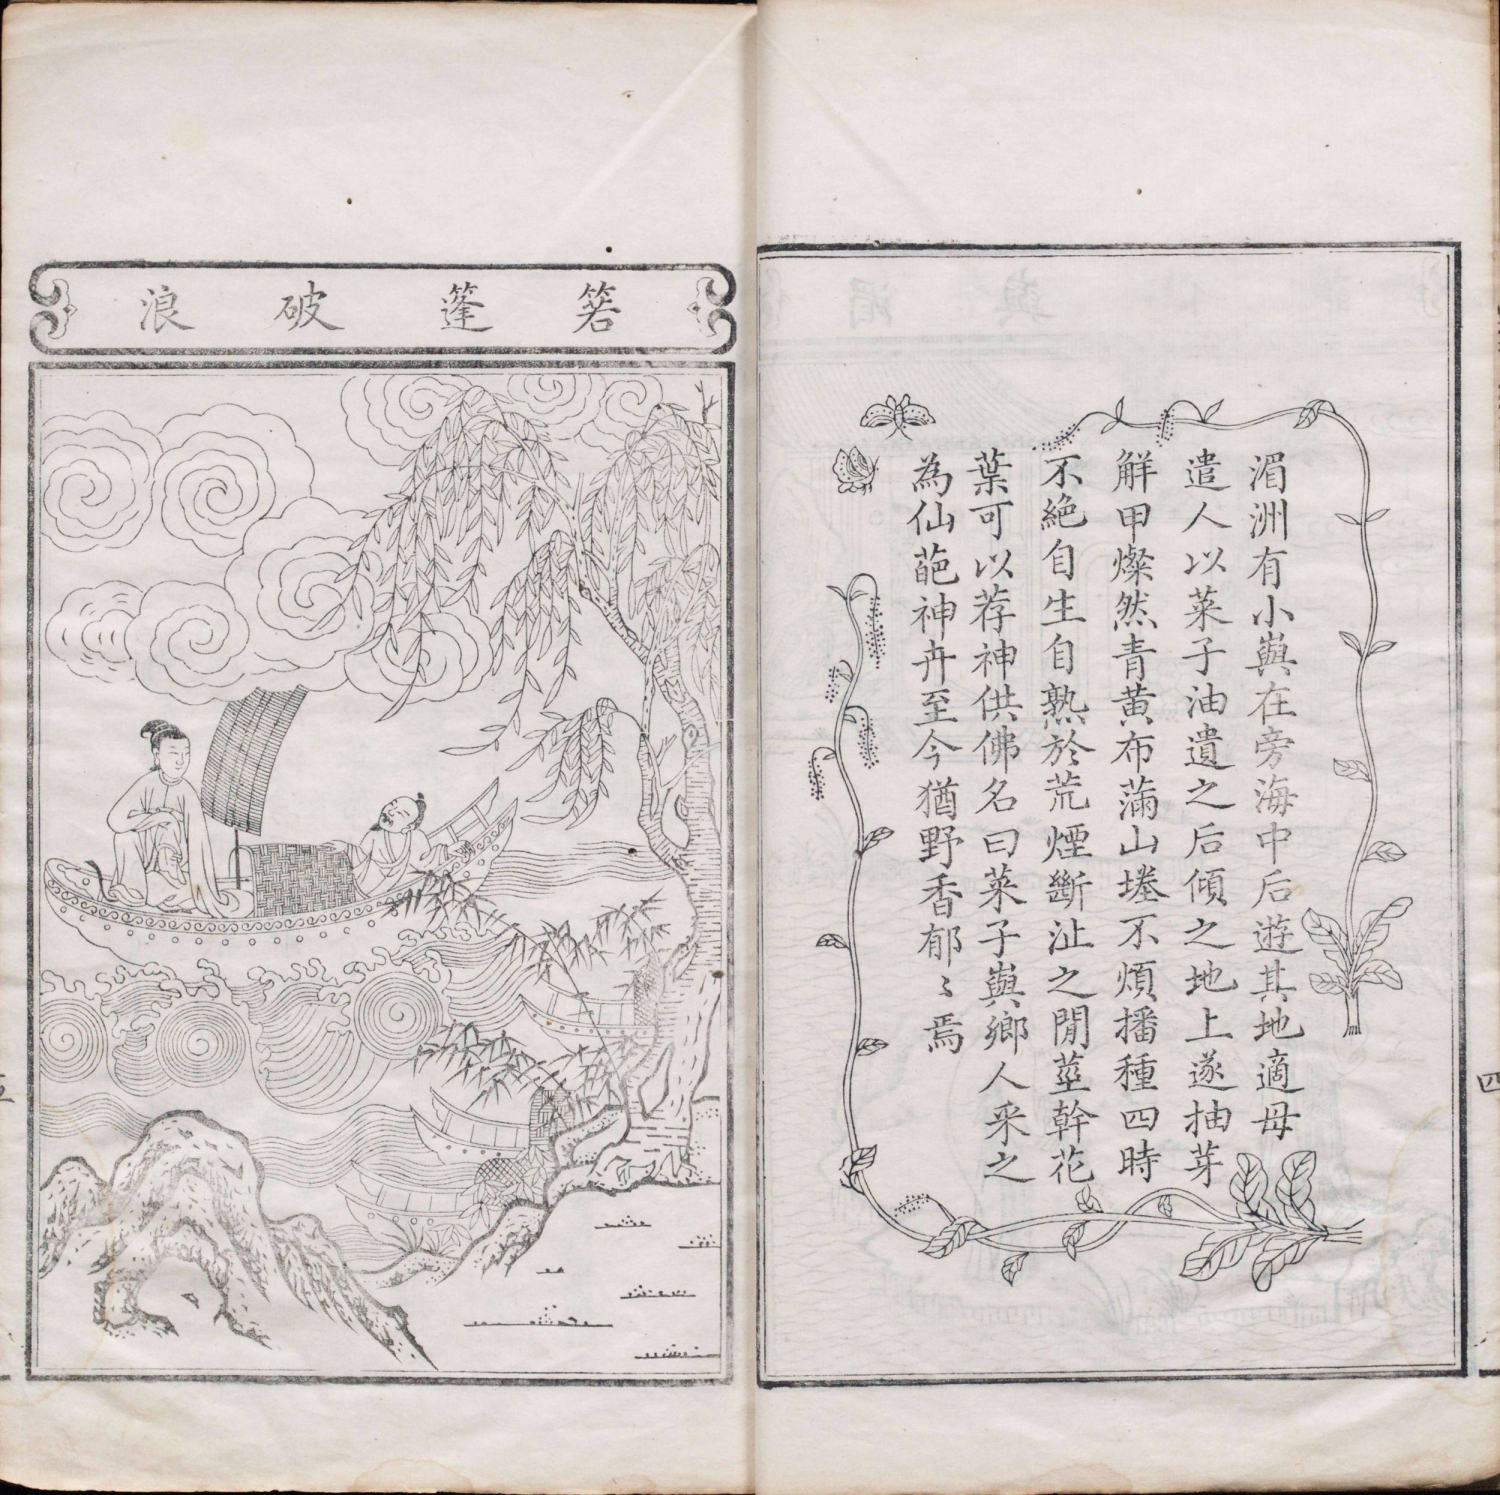 湄洲有小㠘在旁海中后遊其地適母
遣人以菜子油遺之后傾之地上遂抽芽
解甲燦然青黄布滿山㙩不煩播種四時
不絕自生自熟於荒煙斷沚之閒莖幹花
葉可以荐神供佛名曰菜子㠘鄉人采之
為仙葩神卉至今猶野香郁〻焉
四
箬蓬破浪
五